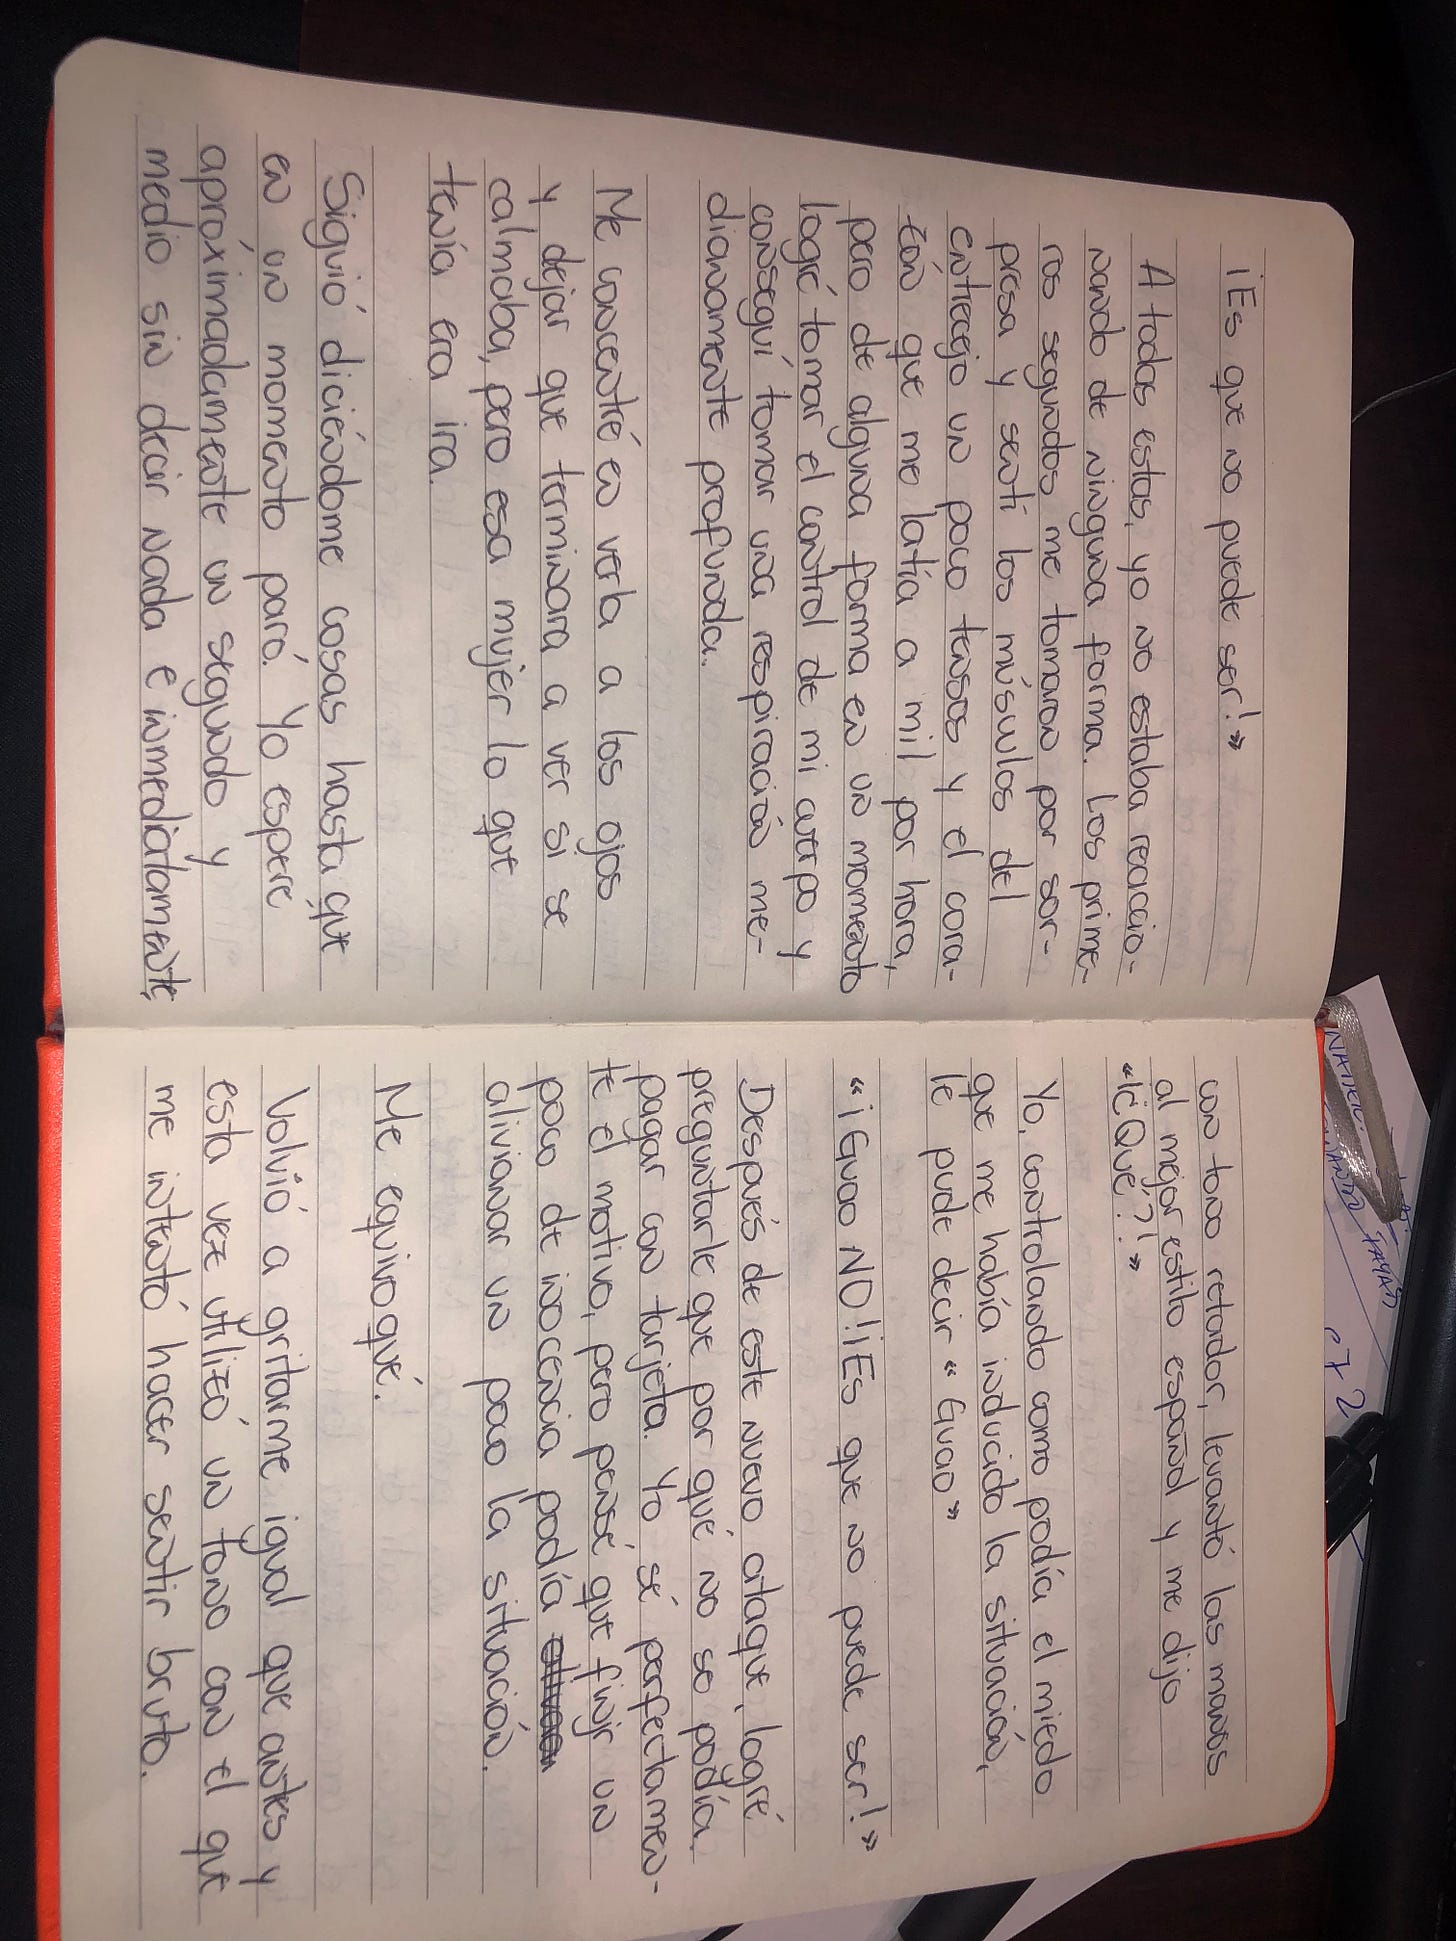 ¡Es que no puede ser!»
A todas estas, yo no estaba reaccio-
nando de ninguna forma. Los prime-
ros segundos me tomaron por sor-
presa y sentí los músculos del
entrecejo un poco tensos y el cora-
zón que me latía a mil por hora,
pero de alguna forma en un momento
logré tomar el control de mi cuerpo y
conseguí tomar una respiración me-
dianamente profunda.
Me concentré en verla a los ojos
y dejar que terminara a ver si se
calmaba, pero esa mujer lo que
tenía era ira.
Siguió diciéndome cosas hasta que
en un momento paró. Yo espere
apróximadamente un segundo y
medio sin decir nada e inmediatamente,
con tono retador, levantó las manos
al mejor estilo español y me dijo
«¡¿Qué?!»
Yo, controlando como podía el miedo
que me había inducido la situación,
le pude decir «Guao»
«¡Guao NO! ¡Es que no puede ser!»
Después de este nuevo ataque, logré
preguntarle que por qué no se podía
pagar con tarjeta. Yo sé perfectamen-
te el motivo, pero pensé que finjir un
poco de inocencia podía
alivianar un poco la situación.
Me equivoqué.
Volvió a gritarme igual que antes y
esta vez utilizó un tono con el que
me intentó hacer sentir bruto.